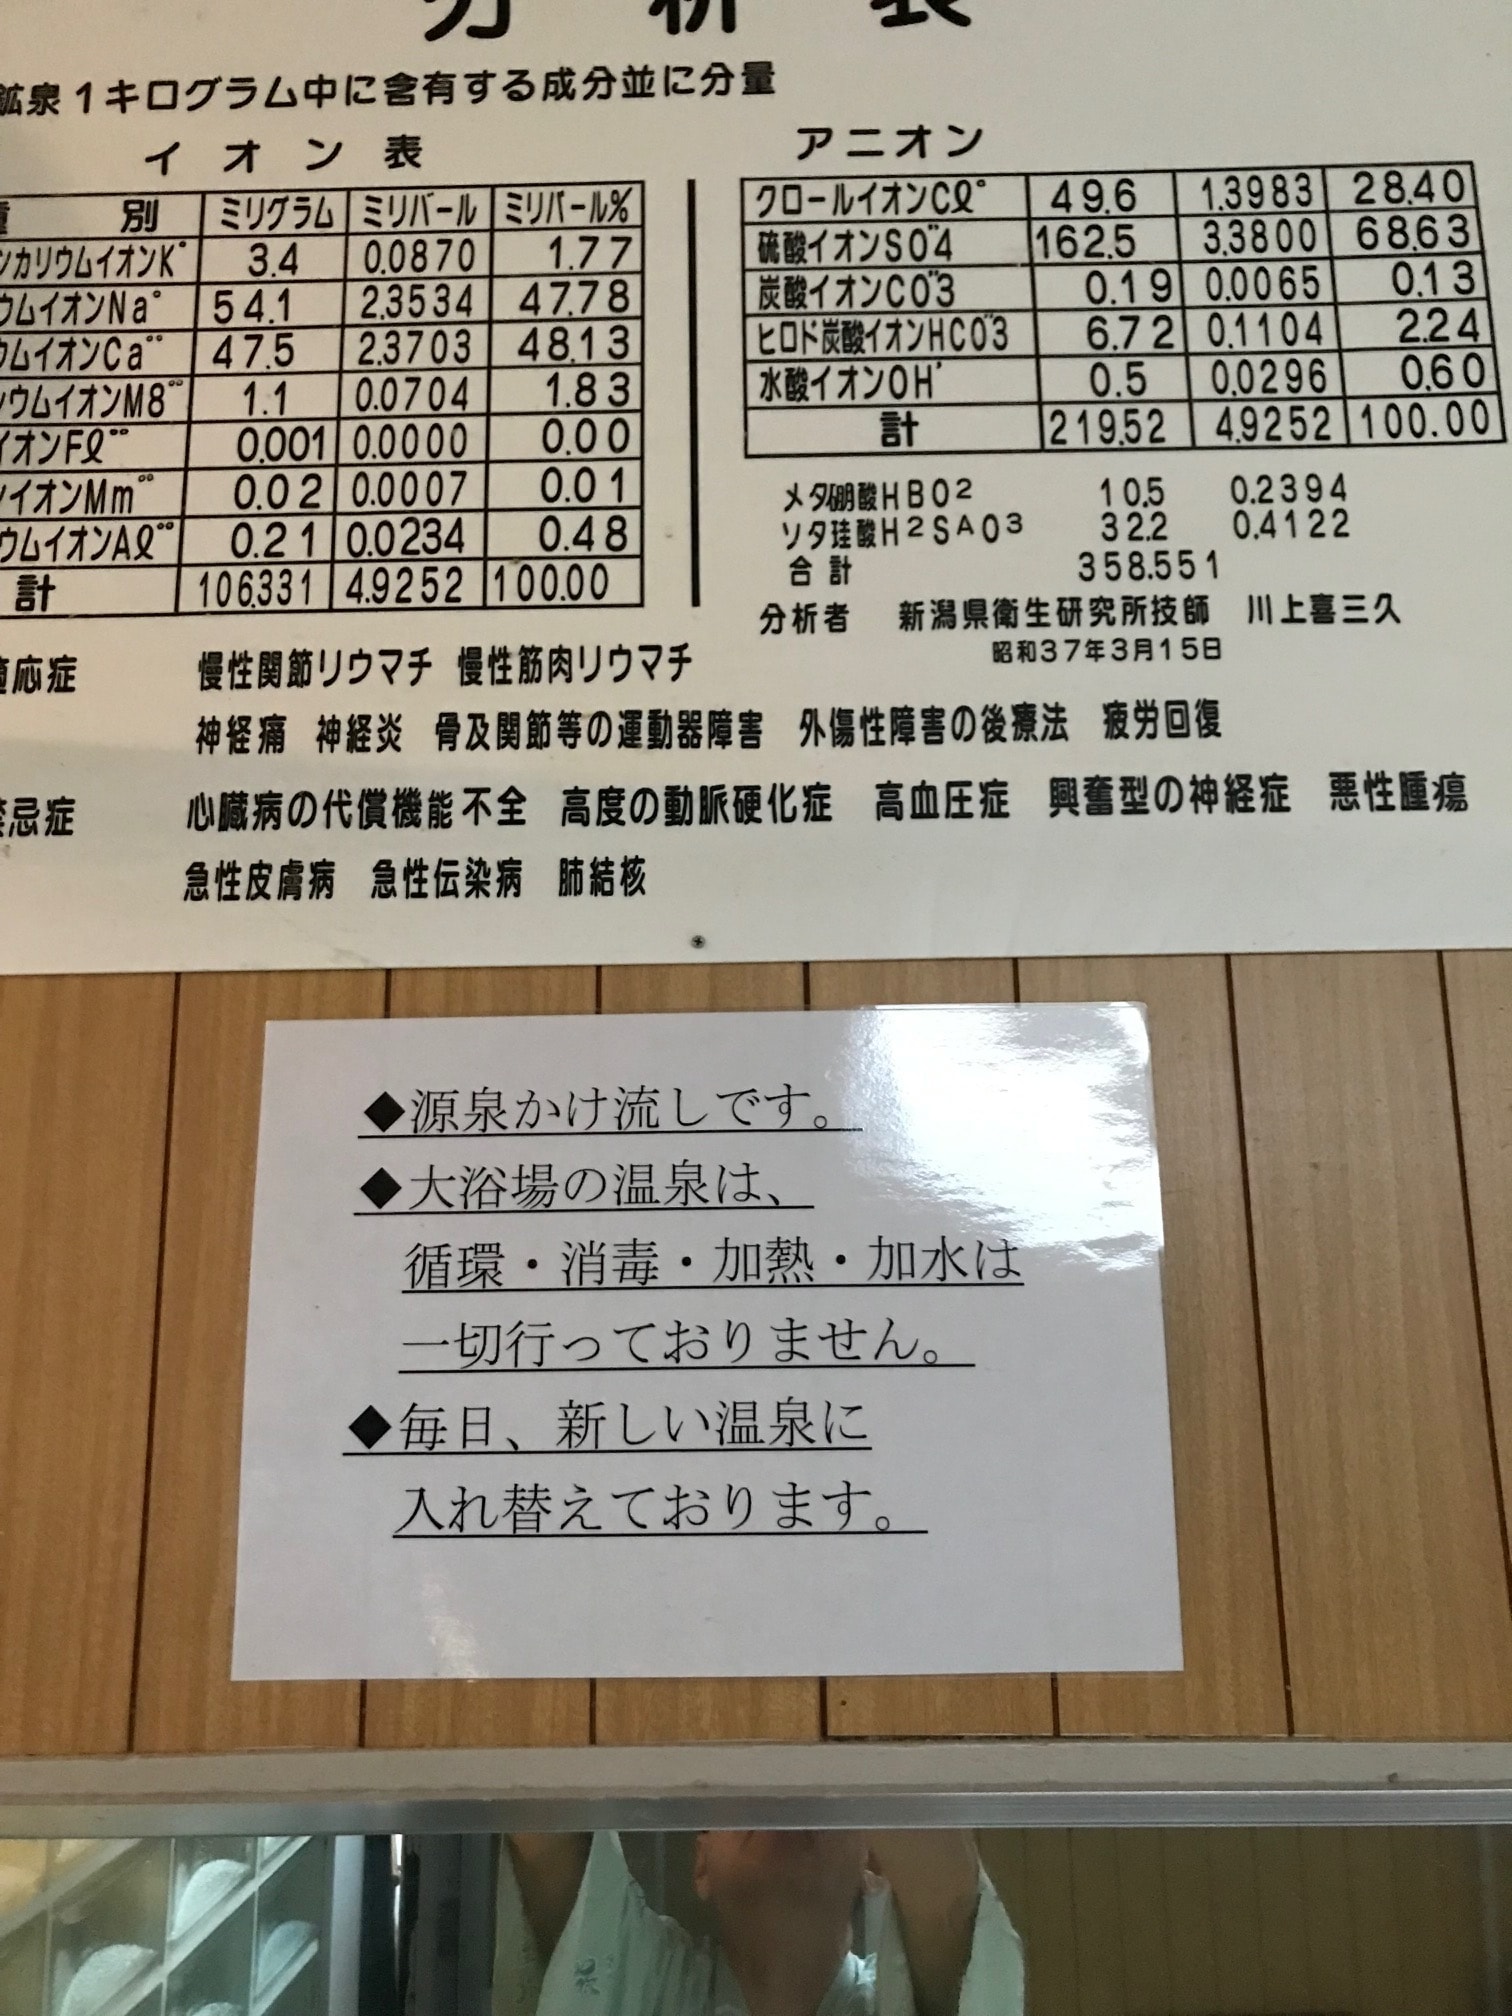 分析表
鉱泉1キログラム中に含有する成分並に分量
イオン表
別 ミリグラム ミリバール ミリバール%
ンカリウムイオンK° 3.4 0.0870 1.77
ウムイオンNa° 54.1 2.3534 47.78
ウムイオンCa°° 47.5 2.3703 48.13
シウムイオンM8°° 1.1 0.0704 1.83
イオンFℓ°° 0.001 0.0000 0.00
ンイオンMm°° 0.02 0.0007 0.01
ウムイオンAℓ°°° 0.21 0.0234 0.48
計 106.331 4.9252 100.00
アニオン
クロールイオンCℓ° 49.6 1.3983 28.40
硫酸イオンSO″4 162.5 3.3800 68.63
炭酸イオンCO″3 0.19 0.0065 0.13
ヒロド炭酸イオンHCO″3 6.72 0.1104 2.24
水酸イオンOH′ 0.5 0.0296 0.60
計 219.52 4.9252 100.00
メタ硼酸HBO2 10.5 0.2394
ソタ珪酸H2SAO3 32.2 0.4122
合計 358.551
分析者 新潟県衛生研究所技師 川上喜三久
昭和37年3月15日
適応症 慢性関節リウマチ 慢性筋肉リウマチ
神経痛 神経炎 骨及関節等の運動器障害 外傷性障害の後療法 疲労回復
禁忌症 心臓病の代償機能不全 高度の動脈硬化症 高血圧症 興奮型の神経症 悪性腫瘍
急性皮膚病 急性伝染病 肺結核
◆源泉かけ流しです。
◆大浴場の温泉は、
循環・消毒・加熱・加水は
一切行っておりません。
◆毎日、新しい温泉に
入れ替えております。